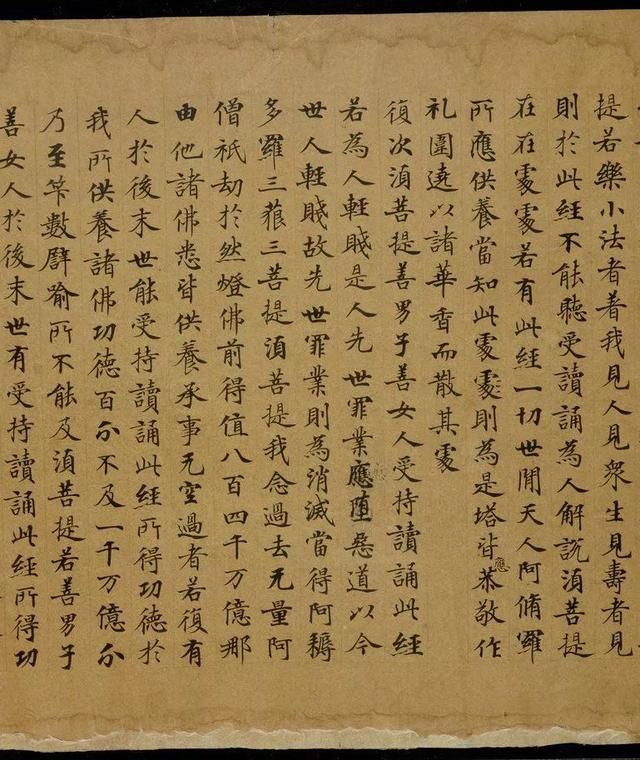 提若樂小法者著我見人見衆生見壽者見
則於此經不能聽受讀誦為人解說湏菩提
在在處處若有此經一切世間天人阿脩羅
所應供養當知此處處則為是塔皆應恭敬作
礼圍遶以諸華香而散其處
復次湏菩提善男子善女人受持讀誦此經
若為人輕賤是人先世罪業應堕惡道以今
世人輕賤故先世罪業則為消滅當得阿耨
多羅三藐三菩提湏菩提我念過去无量阿
僧祇劫於然燈佛前得值八百四千万億那
由他諸佛悉皆供養承事无空過者若復有
人於後末世能受持讀誦此經所得功德於
我所供養諸佛功德百分不及一千万億分
乃至筭數譬喻所不能及湏菩提若善男子
善女人於後末世有受持讀誦此經所得功